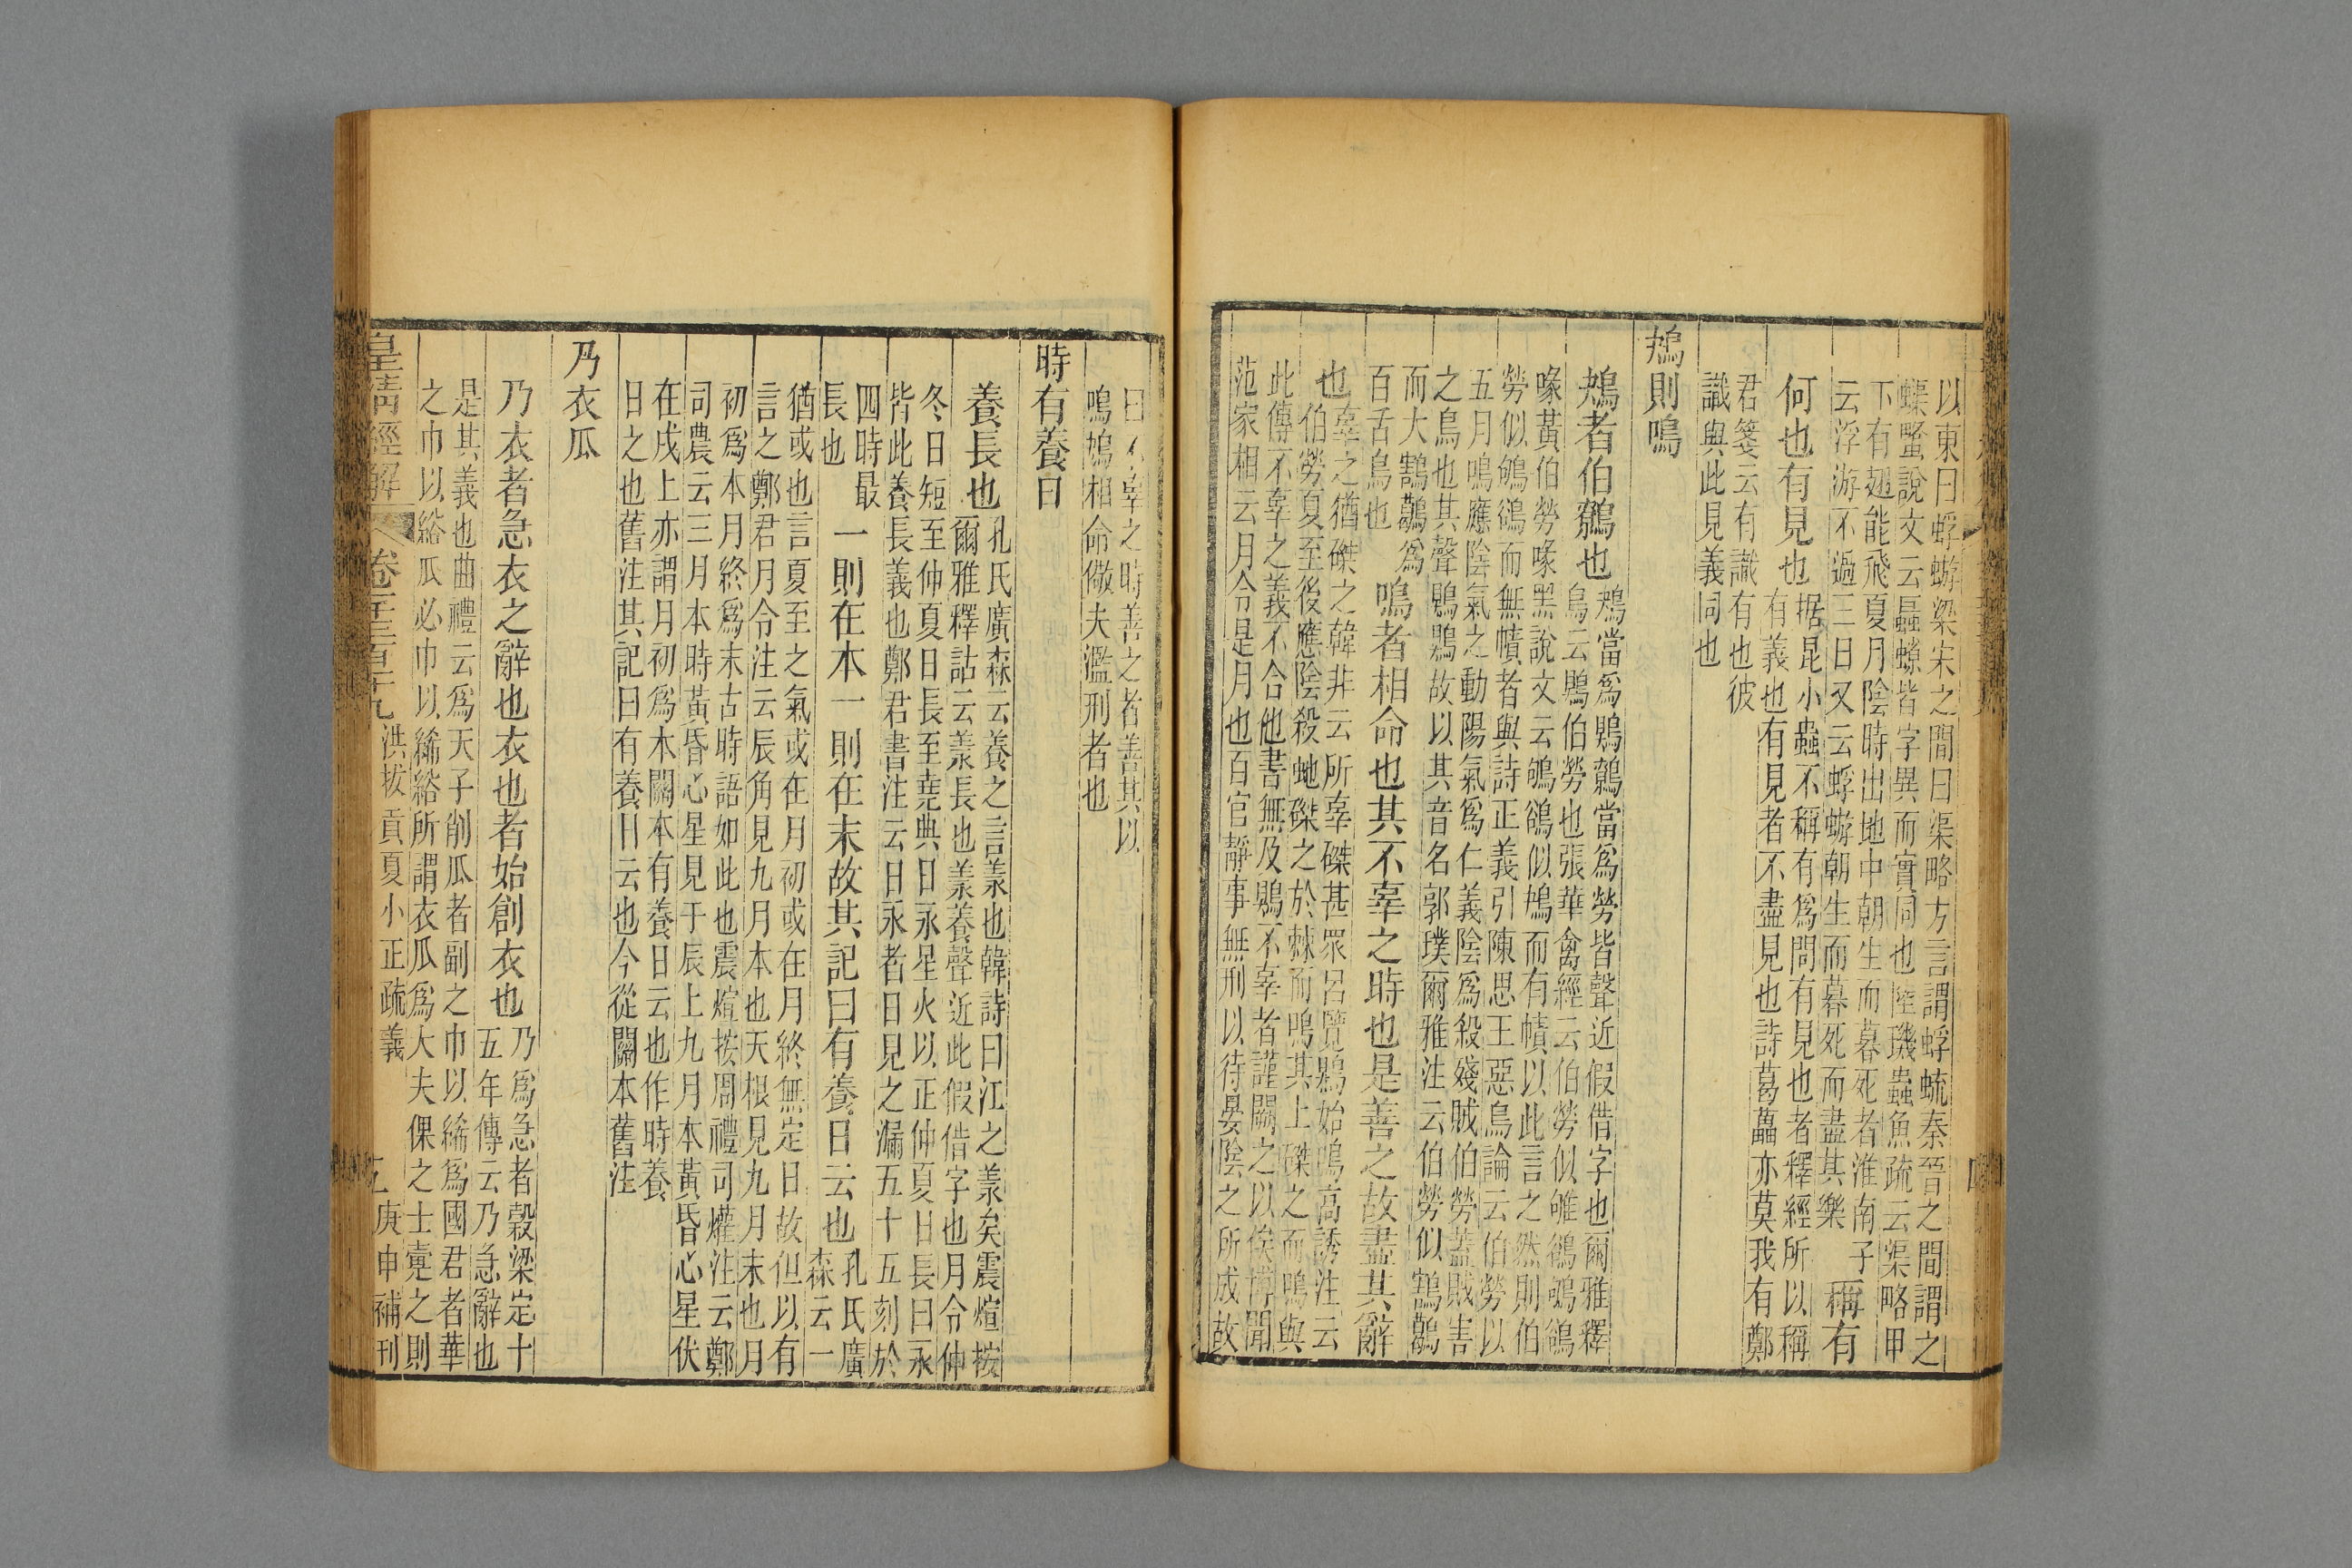 以東曰蜉蝣梁宋之間曰渠略方言謂蜉𧓎秦晉之間謂之
蟝䘂說文云蟁螈皆字異而實同也陸璣蟲魚疏云渠略甲
下有翅能飛夏月陰時出地中朝生而暮死者淮南子
云浮游不過三日又云蜉蝣朝生而暮死而盡其樂
稱有
何也有見也
据昆小蟲不稱有爲問有見也者釋經所以稱
有義也有見者不盡見也詩葛藟亦莫我有鄭
君箋云有識有也彼
識與此見義同也
鴂則鳴
鴂者伯鷯也
鴂當爲鵙鷯當爲勞皆聲近假借字也爾雅釋
鳥云鵙伯勞也張華禽經云伯勞似鴝鵒鴝鵒
喙黃伯勞喙黑說文云鴝鵒似鴂而有幘以此言之然則伯
勞似鴝鵒而無幘者與詩正義引陳思王惡鳥論云伯勞以
五月鳴應陰氣之動陽氣爲仁義陰爲殺殘賊伯勞蓋賊害
之鳥也其聲鵙鵙故以其音名郭璞爾雅注云伯勞似鶷鶡
而大鶷鶡爲
百舌鳥也
鳴者相命也其不辜之時也是善之故盡其辭
也
辜之猶磔之韓非云所辜磔甚眾呂覽鵙始鳴高誘注云
伯勞夏至後應陰殺虵磔之於棘而鳴其上磔之而鳴與
此傳不辜之義不合他書無及鵙不辜者謹闕之以俟博聞
范家相云月令是月也百官靜事無刑以待晏陰之所成故
曰不辜之時善之者善其以
鳴鴂相命儆夫濫刑者也
時有養日
養長也
孔氏廣森云養之言羕也韓詩曰江之羕矣震煊按
爾雅釋詁云羕長也羕養聲近此假借字也月令仲
冬日短至仲夏日長至堯典日永星火以正仲夏日長曰永
皆此養長義也鄭君書注云日永者日見之漏五十五刻於
四時最
長也
一則在本一則在末故其記曰有養日云也
孔氏廣
森云一
猶或也言夏至之氣或在月初或在月終無定日故但以有
言之鄭君月令注云辰角見九月本也天根見九月末也月
初爲本月終爲末古時語如此也震煊按周禮司爟注云鄭
司農云三月本時黃昏心星見于辰上九月本黃昏心星伏
在戌上亦謂月初爲本關本有養日云也作時養
日之也舊注其記曰有養日云也今從關本舊注
乃衣瓜
乃衣者急衣之辭也衣也者始創衣也
乃爲急者穀梁定十
五年傳云乃急辭也
是其義也曲禮云爲天子削瓜者副之巾以絺爲國君者華
之巾以綌瓜必巾以絺綌所謂衣瓜爲大夫倮之士疐之則
皇清經解 卷千三百十九 洪拔貢夏小正疏義 庚申補刊